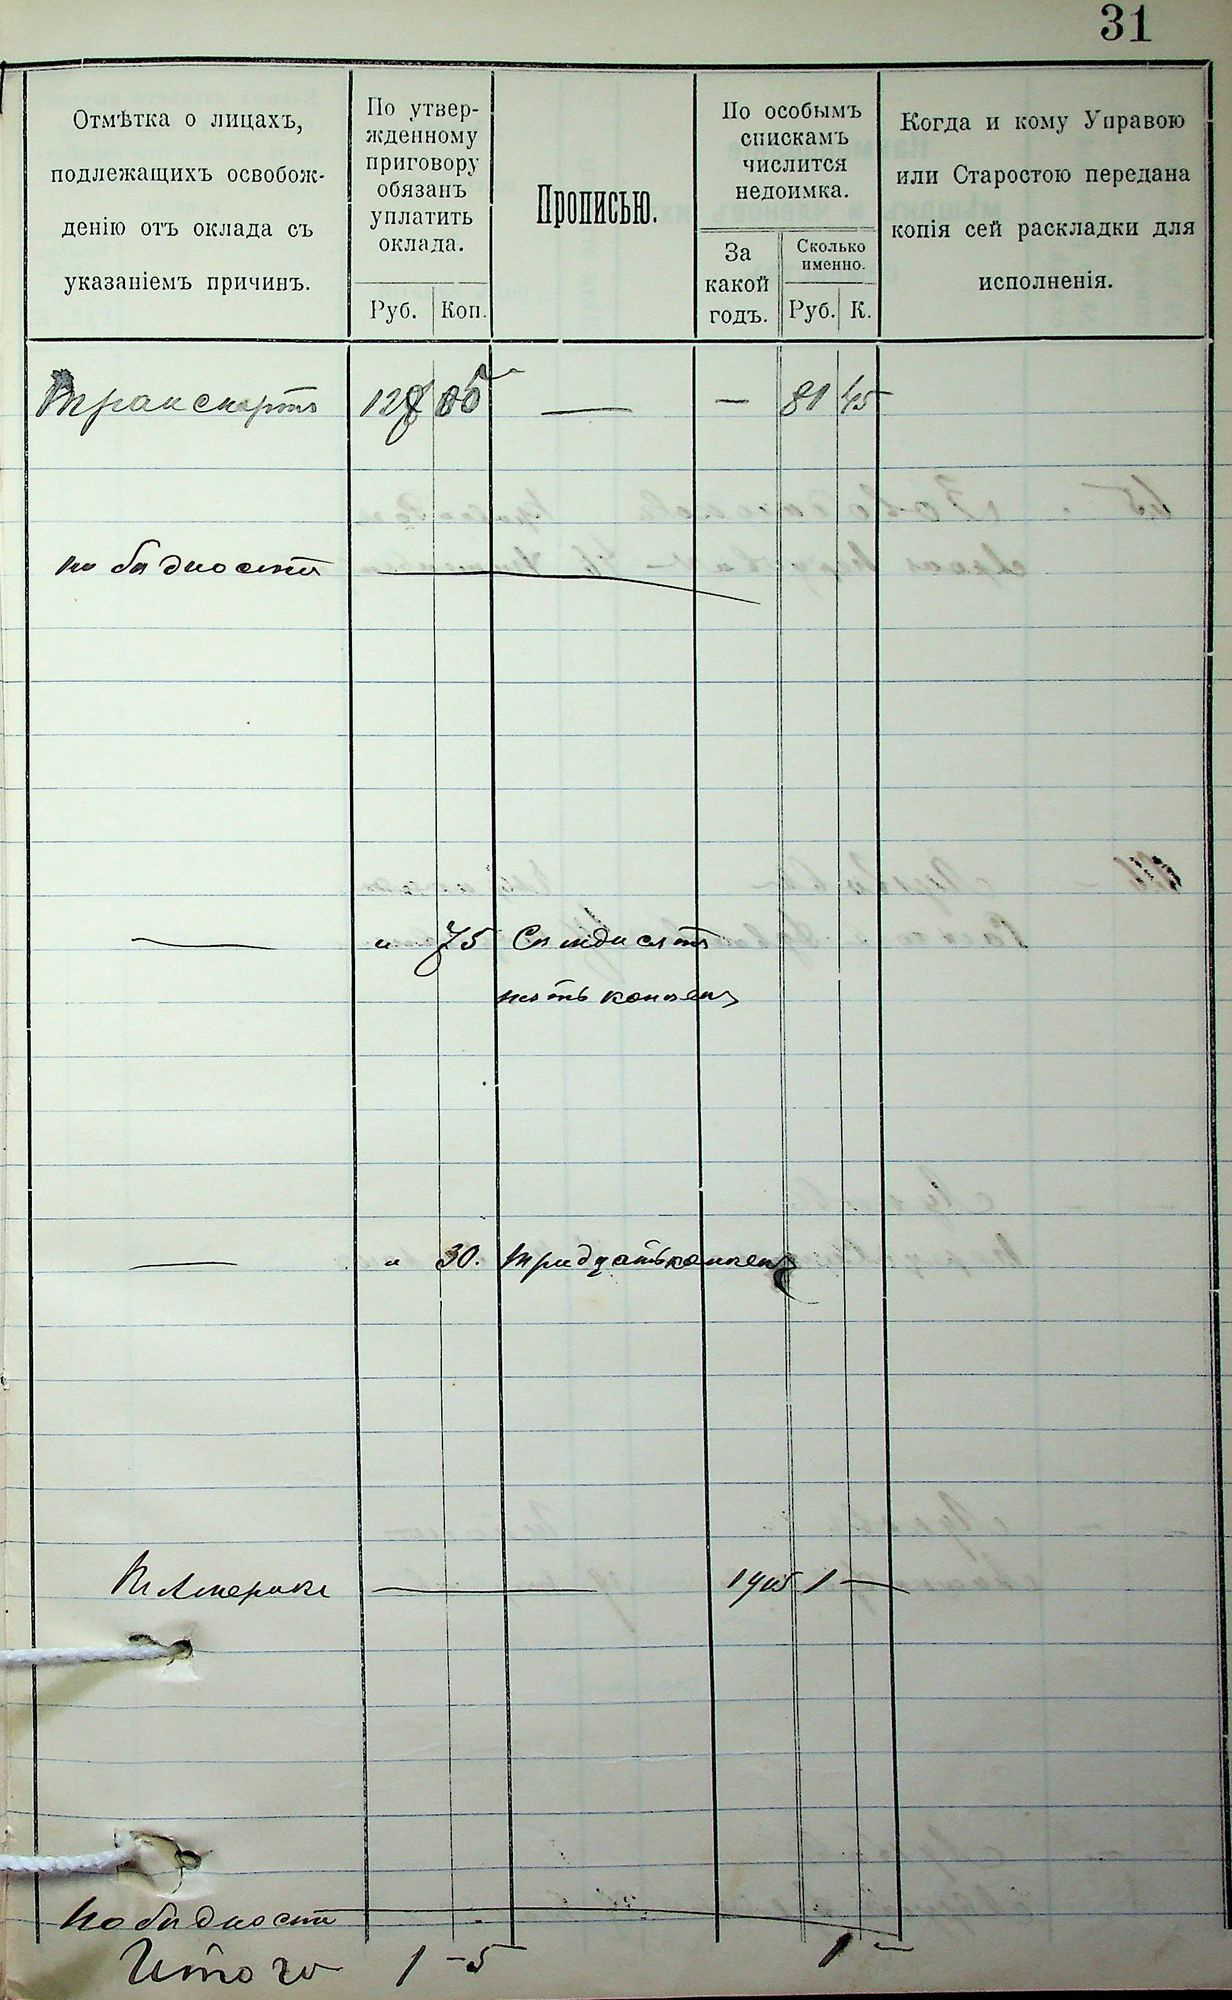 31
Отмѣтка о лицахъ,
подлежащихъ освобож-
денію отъ оклада съ
указаніемъ причинъ.
По утвер-
жденному
приговору
обязанъ
уплатить
оклада.
Руб.
Коп.
Прописью.
По особымъ
спискамъ
числится
недоимка.
За
какой
годъ.
Сколько
именно.
Руб.
К.
Когда и кому Управою
или Старостою передана
копія сей раскладки для
исполненія.
Транспортъ — — 81 45
по бѣдности
— " 75 Семьдесятъ
пять копѣекъ
— " 30. Тридцать копѣекъ
въ Америкѣ — 1905 1 —
по бѣдности
Итого 1 – 5 1 –